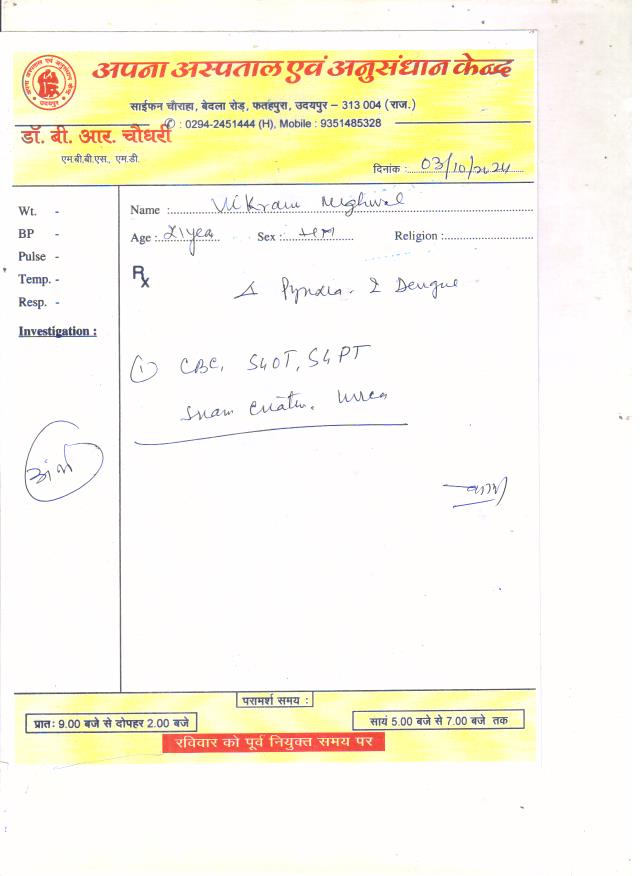 अपना अस्पताल एवं अनुसंधान केन्द्र
साईफन चौराहा, बेदला रोड़, फतहपुरा, उदयपुर – 313 004 (राज.)
✆ : 0294-2451444 (H), Mobile : 9351485328
डॉ. बी. आर. चौधरी
एम.बी.बी.एस., एम.डी.
दिनांक : 03/10/2024
Wt. -
BP -
Pulse -
Temp. -
Resp. -
Investigation :
Name : Vikram Meghwal
Age : 21 year Sex : Religion :
Rx
Δ Pyrexia. Dengue
① CBC, SGOT, SGPT
Urea
परामर्श समय :
प्रातः 9.00 बजे से दोपहर 2.00 बजे
सायं 5.00 बजे से 7.00 बजे तक
रविवार को पूर्व नियुक्त समय पर